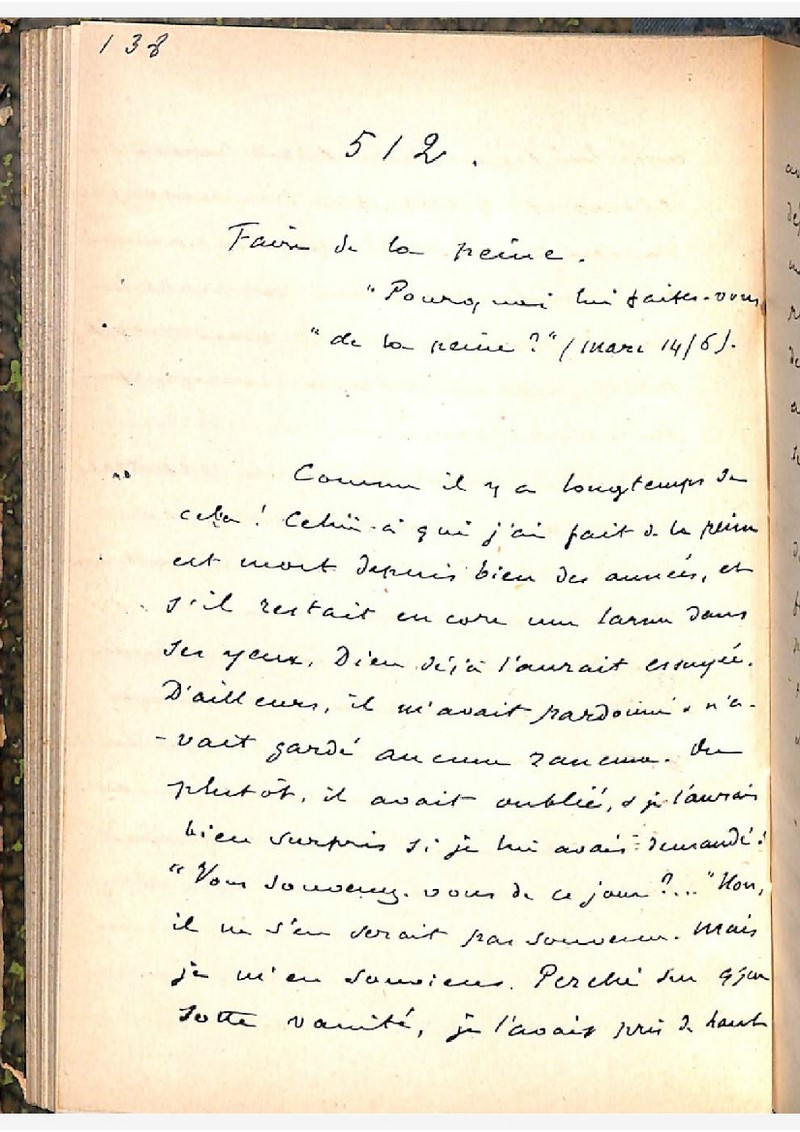 138
512.
Faire de la peine.
"Pourquoi lui faites-vous
"de la peine?" (Marc 14/6).
Comme il y a longtemps de
cela! Celui-là qui j'ai fait de la peine
est mort depuis bien des années, et
s'il restait encore une larme dans
ses yeux, Dieu déjà l'aurait essuyée.
D'ailleurs, il m'avait pardonné & n'a-
-vait gardé aucune rancune. Ou
plutôt, il avait oublié, & je l'aurais
bien surpris si je lui avais demandé:
"Vous souvenez-vous de ce jour?..." Non,
il ne s'en serait pas souvenu. Mais
je m'en souviens. Perché sur
sotte vanité, je l'avais pris de haut